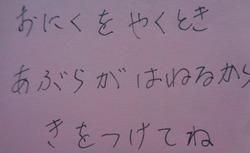 おにくを やくとき
あぶらが はねるから
きをつけてね